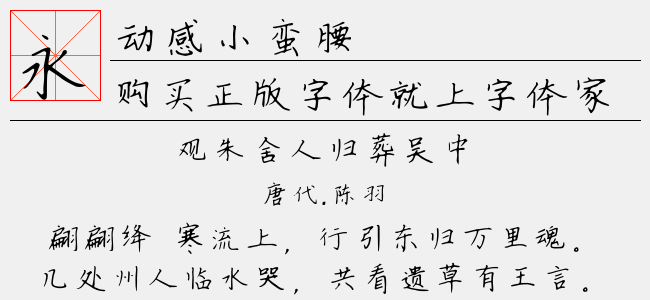 永
动感小蛮腰
购买正版字体就上字体家
观朱舍人归葬吴中
唐代.陈羽
翩翩绛 寒流上，行引东归万里魂。
几处州人临水哭，共看遗草有王言。